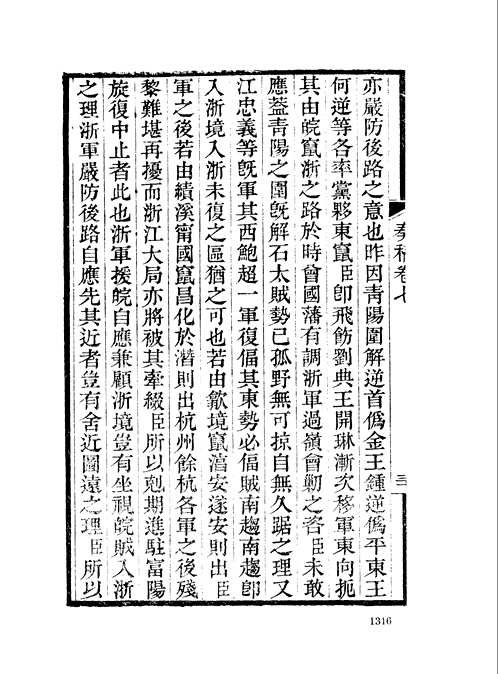 亦嚴防後路之意也昨因靑陽圍解逆首僞金王鍾逆僞平東王
何逆等各率黨夥東竄臣卽飛飭劉典王開琳漸次移軍東向扼
其由皖竄浙之路於時曾國藩有調浙軍過嶺會勦之咨臣未敢
應蓋靑陽之圍旣解石太賊勢已孤野無可掠自無久踞之理又
江忠義等旣軍其西鮑超一軍復偪其東勢必偪賊南趨南趨卽
入浙境入浙未復之區猶之可也若由歙境竄湻安遂安則出臣
軍之後若由績溪甯國竄昌化於潛則出杭州餘杭各軍之後殘
黎難堪再擾而浙江大局亦將被其牽綴臣所以剋期進駐富陽
旋復中止者此也浙軍援皖自應兼顧浙境豈有坐視皖賊入浙
之理浙軍嚴防後路自應先其近者豈有舍近圖遠之理臣所以
奏稿卷七
1316